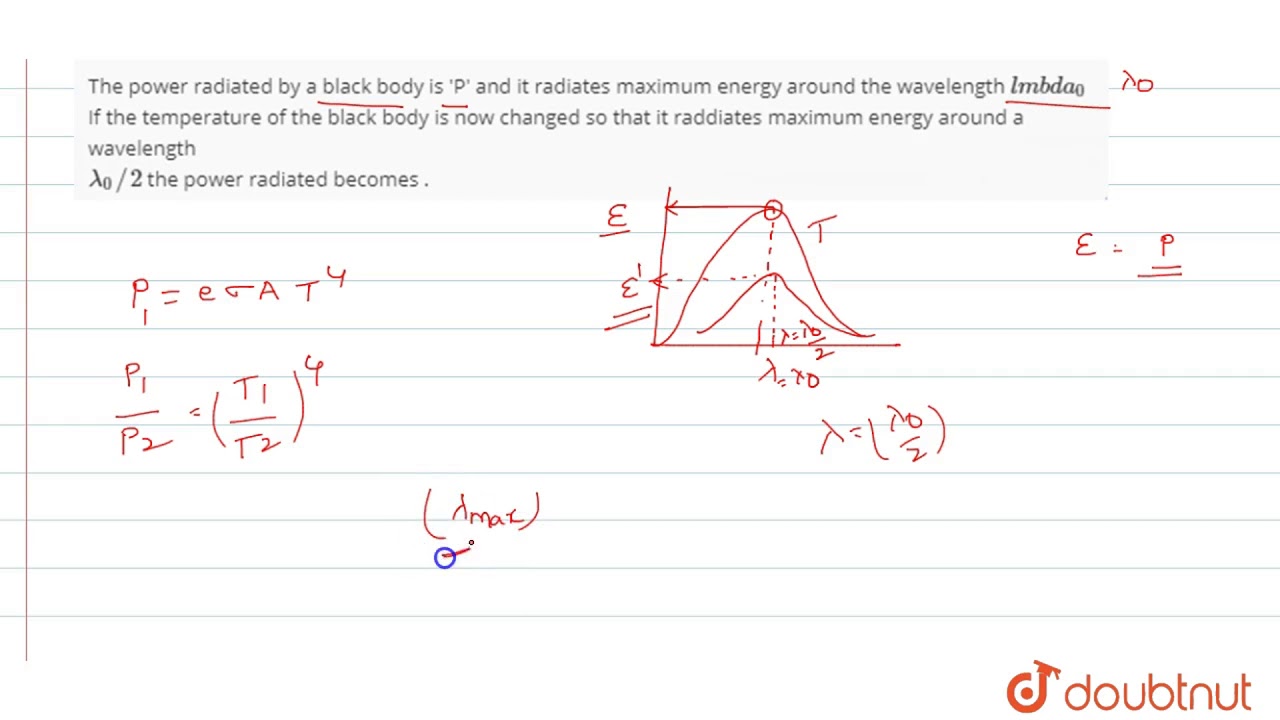 The power radiated by a black body is 'P' and it radiates maximum energy around the wavelength lmbda₀ λ0
If the temperature of the black body is now changed so that it raddiates maximum energy around a
wavelength
λ₀/2 the power radiated becomes .
ε
T
ε = P
P₁ = eσA T⁴
ε'
λ=λ0/2
λ=λ0
P₁/P₂ = (T₁/T₂)⁴
λ=(λ0/2)
(λmax)
doubtnut